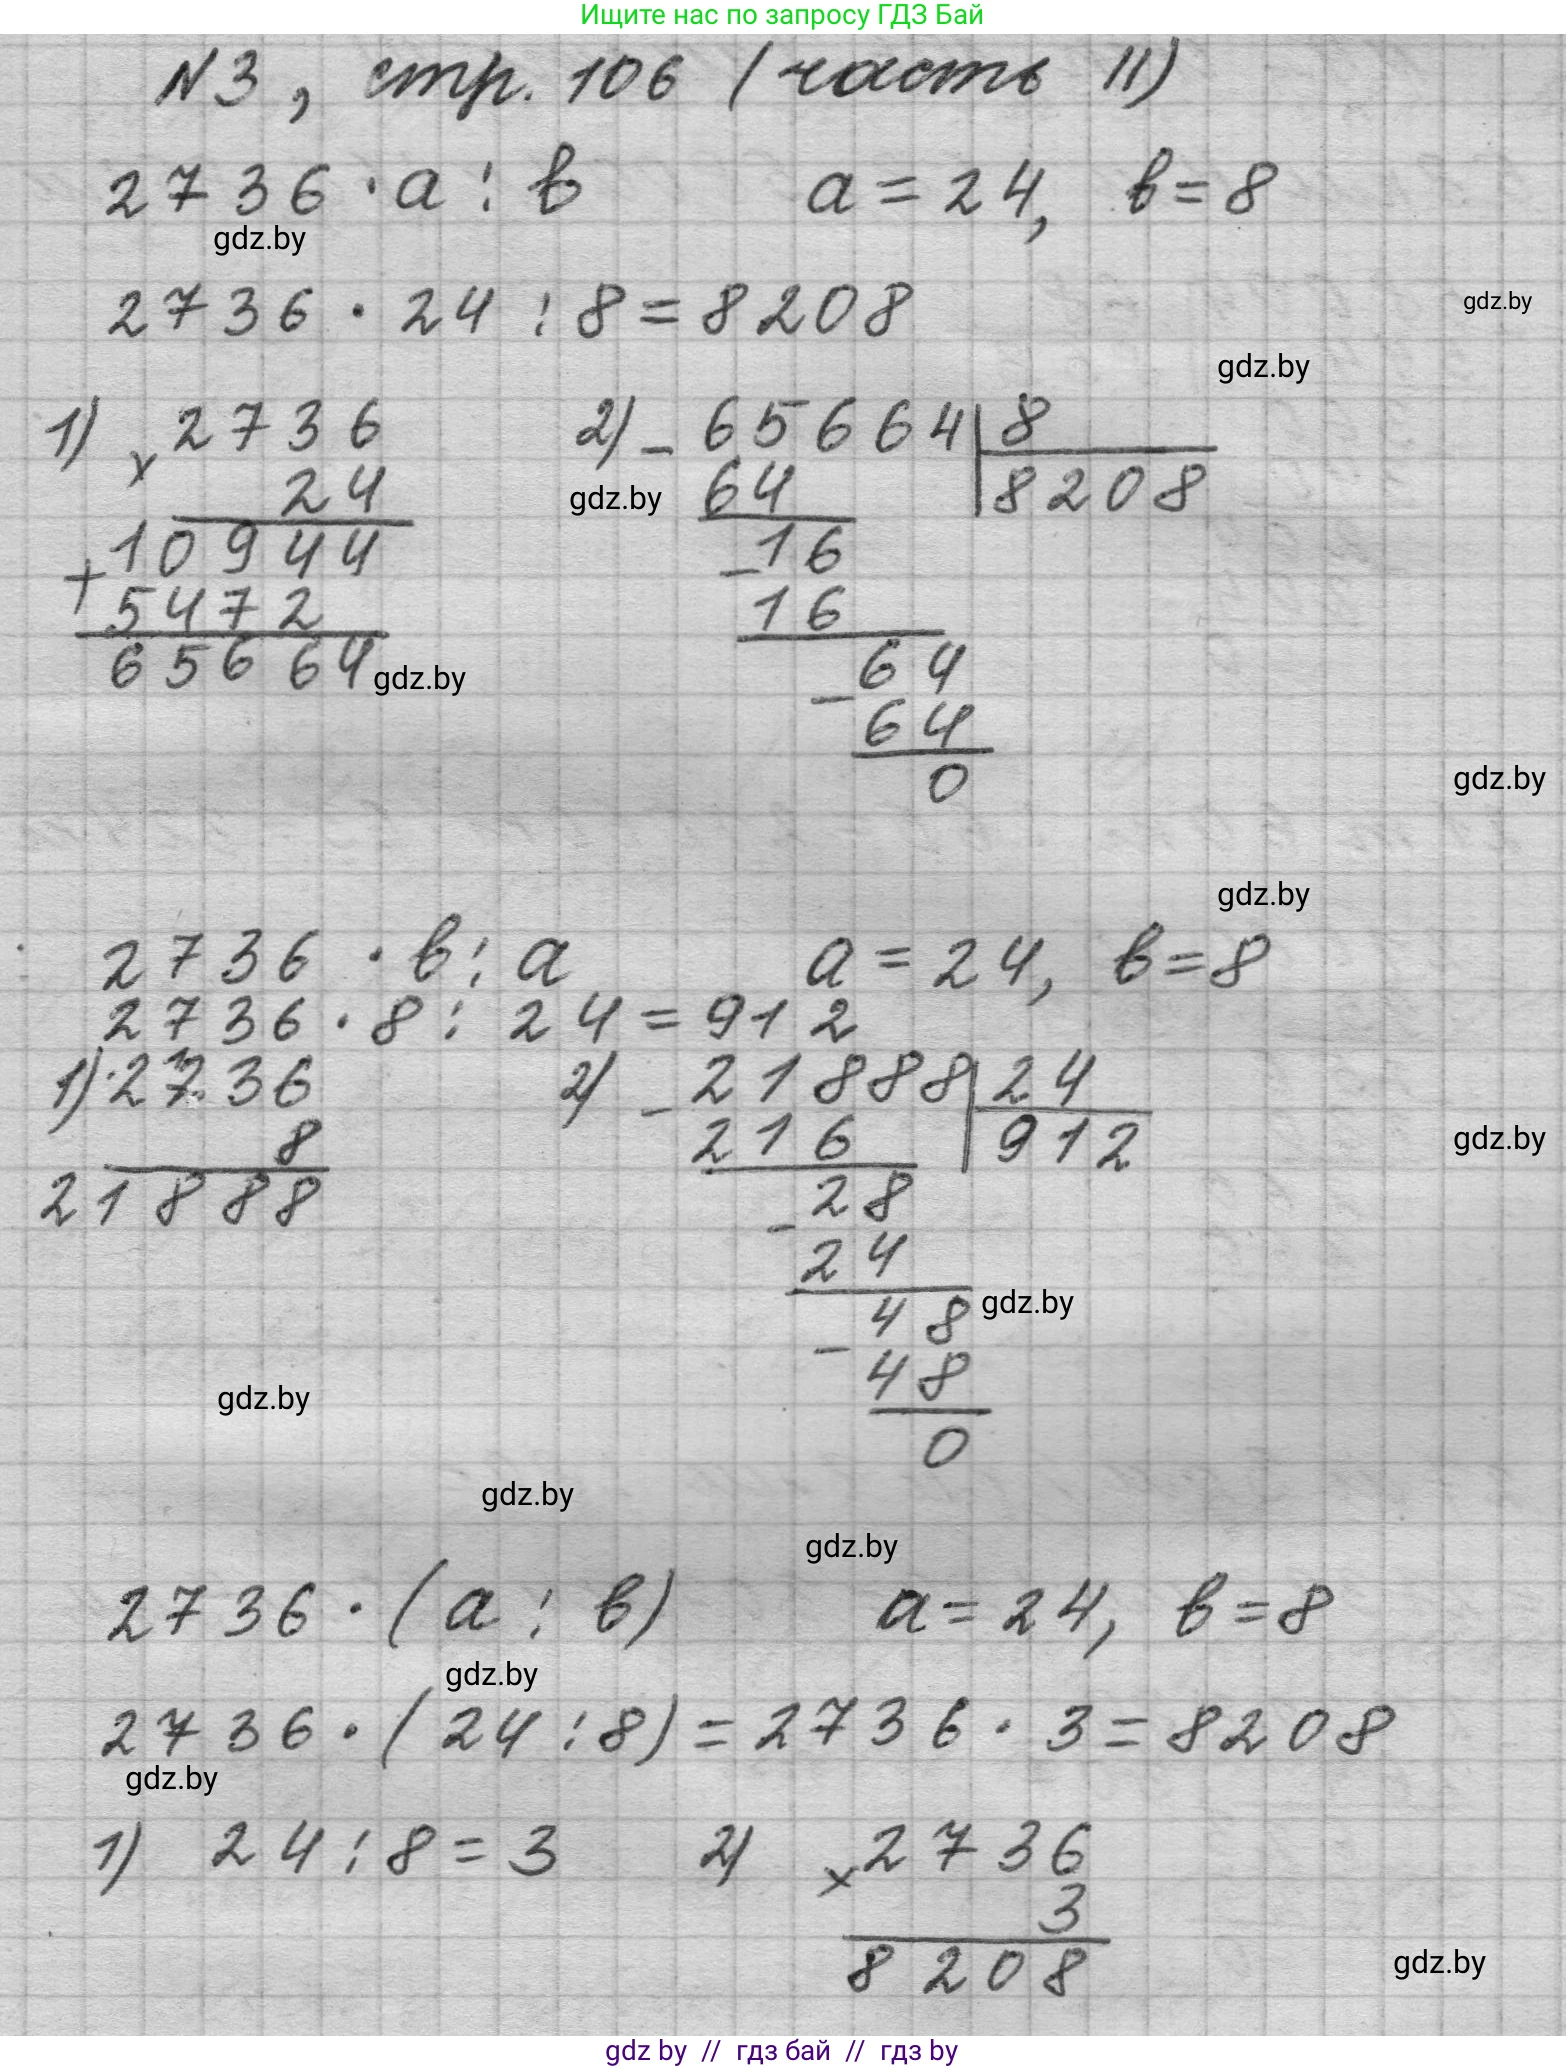 Ищите нас по запросу ГДЗ Бай
N3, стр. 106 (часть II)
2736 · a : b a = 24, b = 8
gdz.by
2736 · 24 : 8 = 8208
gdz.by
gdz.by
1) × 2736
24
+ 10944
5472
65664
gdz.by
2) - 65664 | 8
64 8208
gdz.by
- 16
16
- 64
64
0
gdz.by
gdz.by
2736 · b : a a = 24, b = 8
2736 · 8 : 24 = 912
1) 2736
8
21888
2) - 21888 | 24
216 912
gdz.by
- 28
24
- 48
gdz.by
48
0
gdz.by
gdz.by
gdz.by
2736 · (a : b) a = 24, b = 8
gdz.by
2736 · (24 : 8) = 2736 · 3 = 8208
gdz.by
1) 24 : 8 = 3
2) × 2736
3
8208
gdz.by
gdz by // гдз бай // гдз by